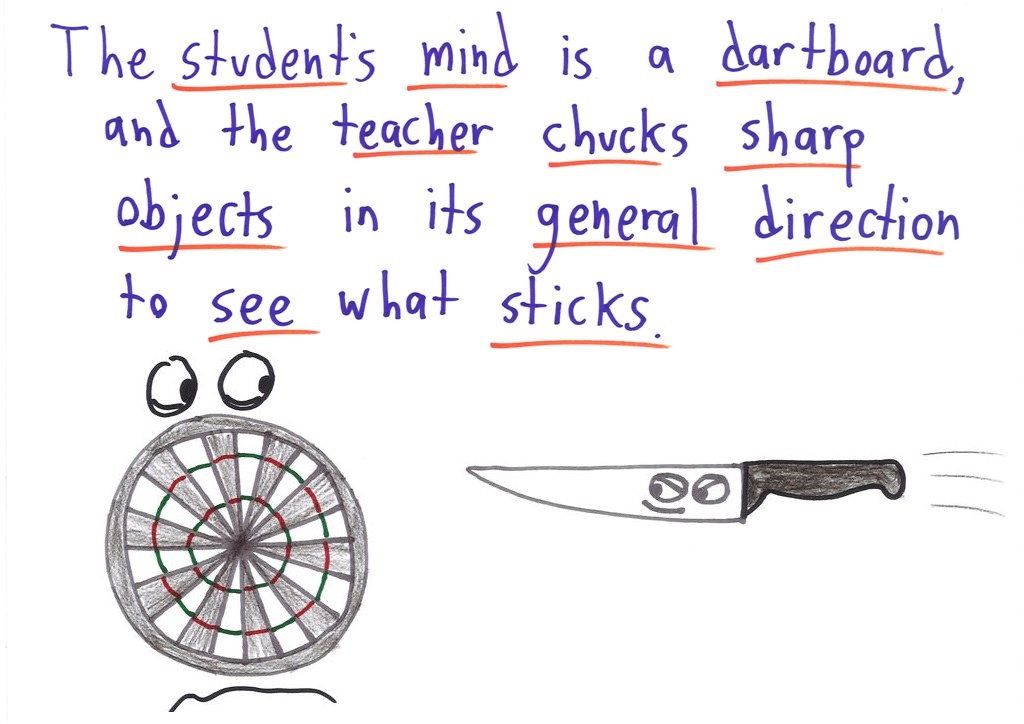 The student's mind is a dartboard,
and the teacher chucks sharp
objects in its general direction
to see what sticks.